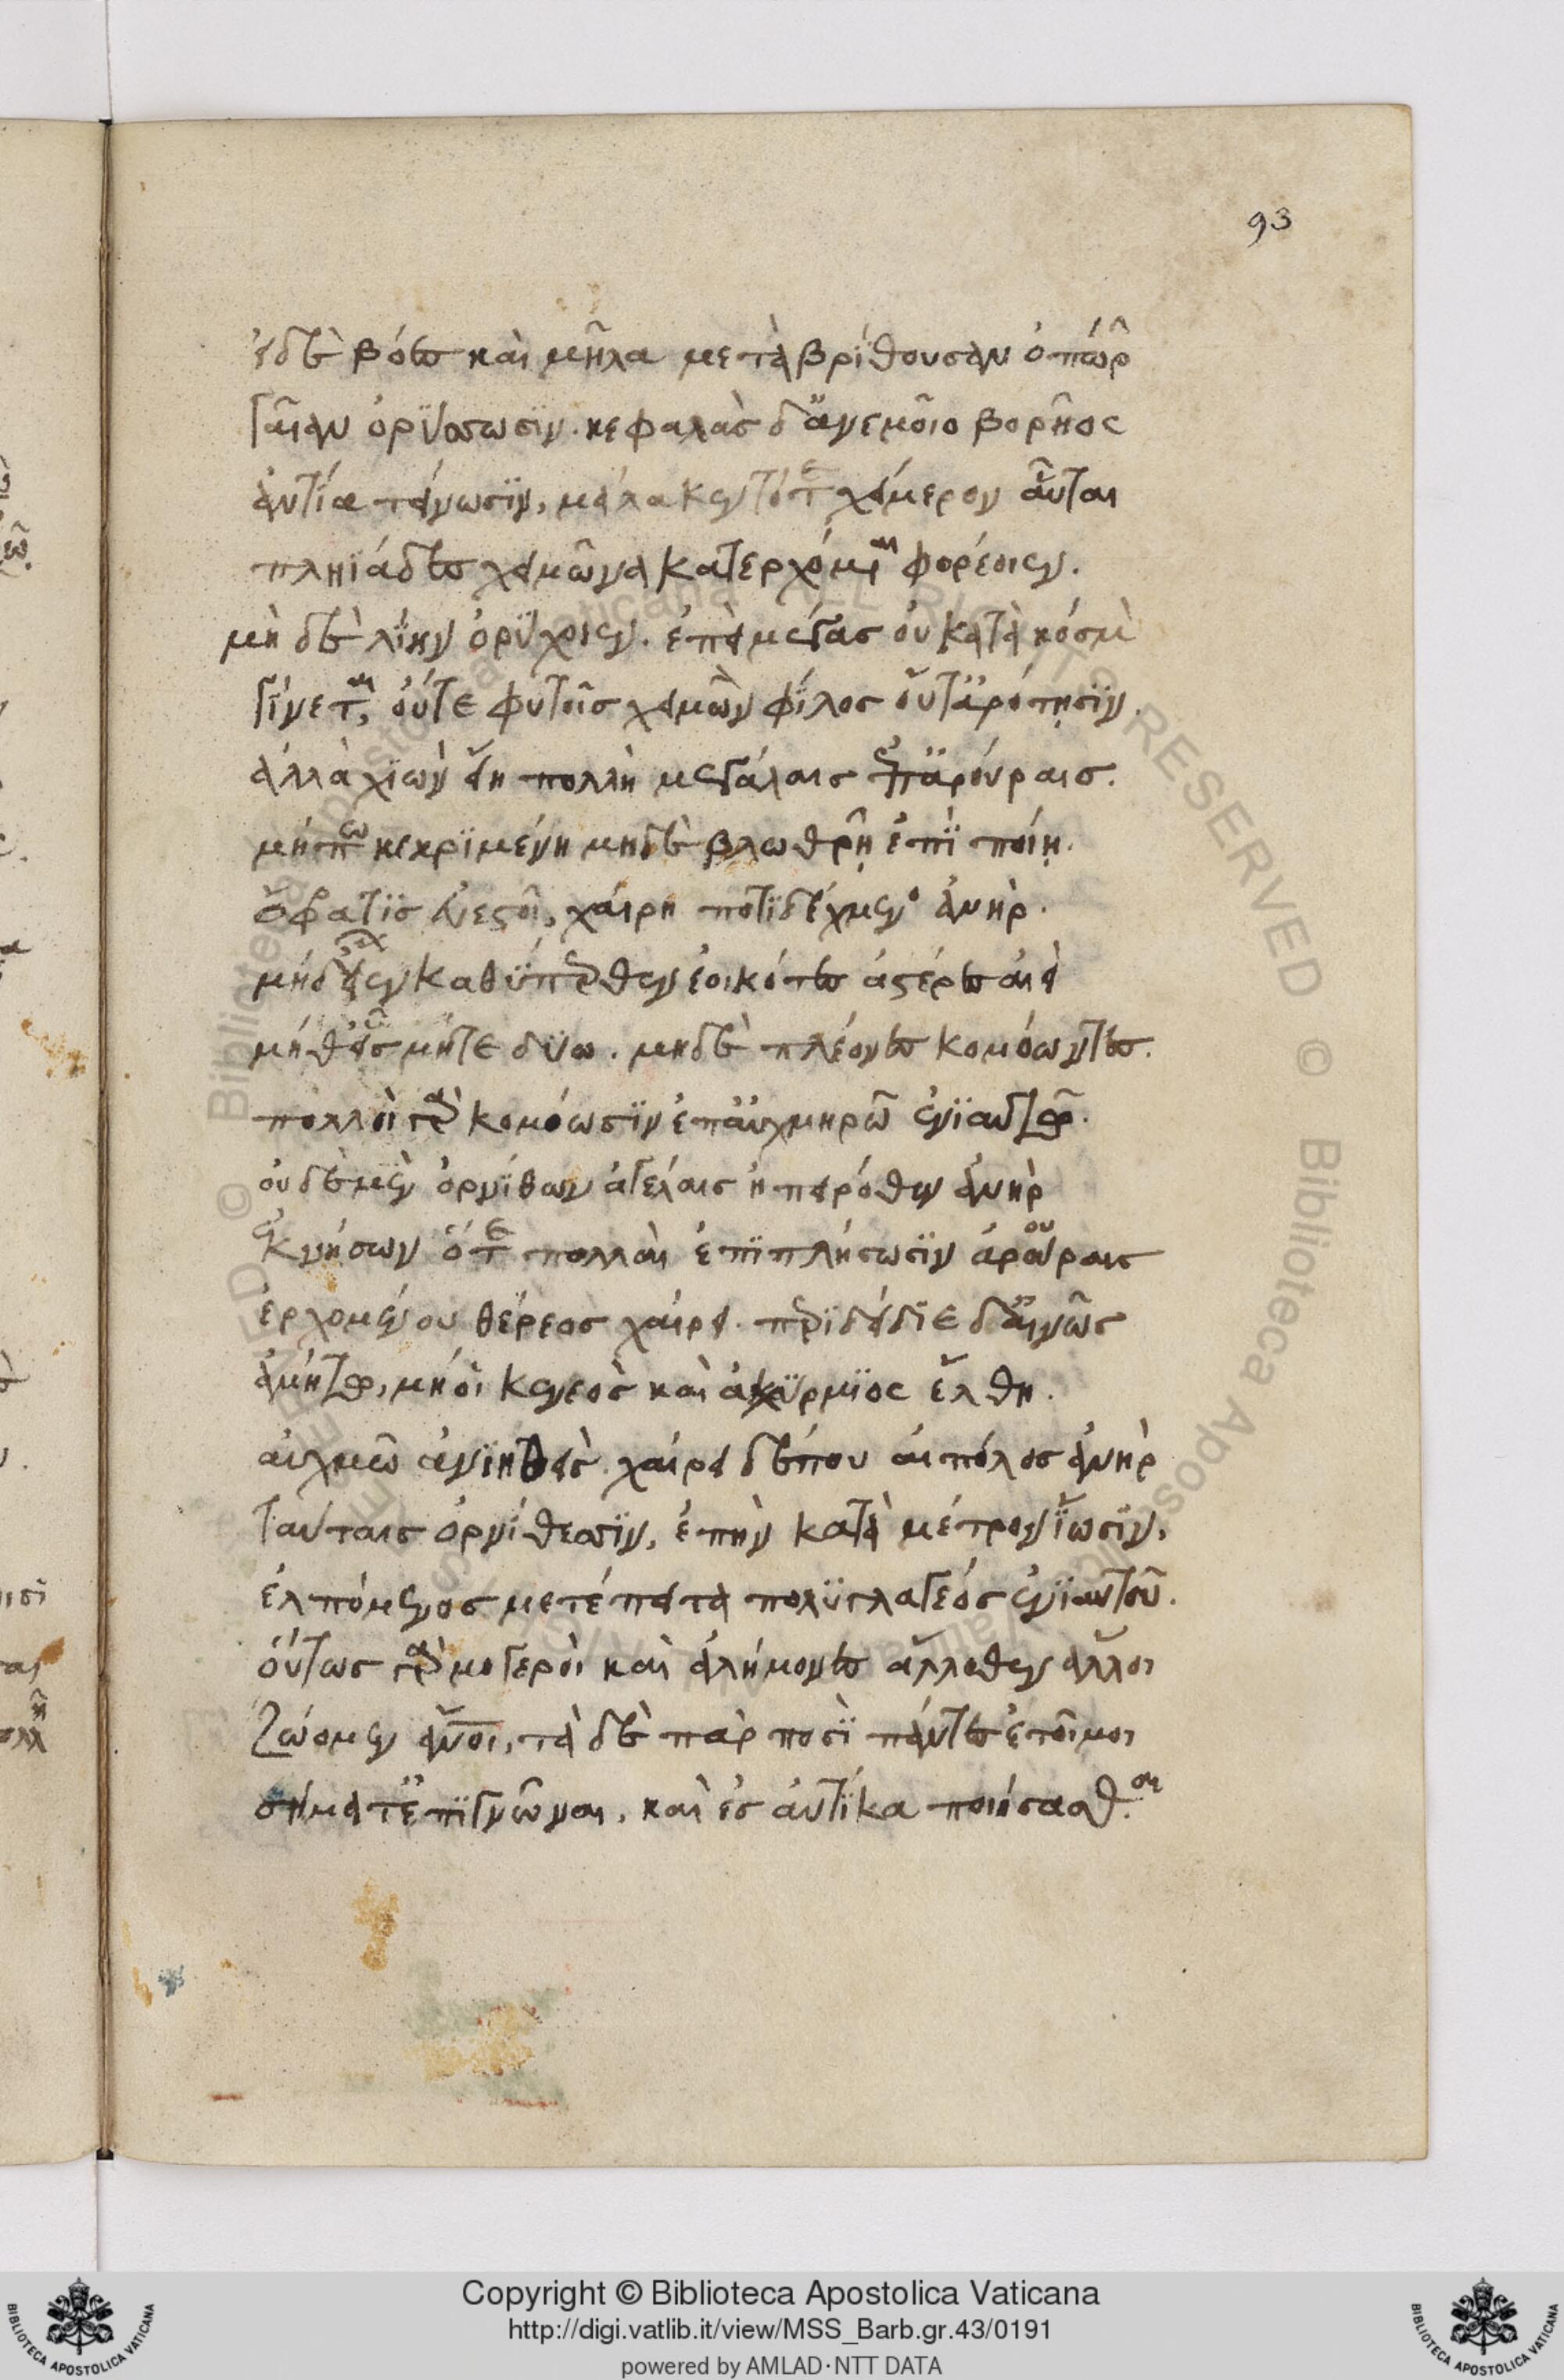 93
εἰ δὲ βόες καὶ μῆλα μετὰ βρίθουσαν ὀπώρῆ
γαῖαν ὀρύσσωσιν. κεφαλὰς δ' ἀνεμοῖο βορῆος
ἀντία τείνωσιν, μάλα κεν τότε χείμερον αὖται
πληϊάδες χειμῶνα κατερχόμεναι φορέοιεν.
μὴ δὲ λίην ὀρύχοιεν. ἐπεὶ μέγας οὐ κατὰ κόσμὸ
γίνεται, οὔτε φυτοῖς χειμὼν φίλος οὔτ' ἀρότησιν.
ἀλλὰ χιὼν εἴη πολλὴ μεγάλαις ἐπ' ἀρούραις.
μήπω κεκριμένη μηδὲ βλωθρῇ ἐπὶ ποίῃ.
ὄφρα τὶς εὐεστοῖ, χαίρη ποτὶδέχμενος ἀνὴρ.
μήδ' εἶεν καθύπερθεν ἐοικότες ἀστέρες αἰεὶ
μήθ' εἷς μήτε δύω. μηδὲ πλέονες κομόωντες.
πολλοὶ γὰρ κομόωσιν ἐπ' αὐχμηρῶ ἐνιαυτῶ.
οὐδὲ μὲν ὀρνίθων ἀγέλαις ἠπειρόθεν ἀνὴρ
ἐκ νήσων ὅτε πολλαὶ ἐπιπλήσωσιν ἀρούραις
ἐρχομένου θέρεος χαίρει. περιδείδιε δ' αἰνῶς
ἀμήτω, μή οἱ κενεὸς καὶ ἀχύρμιος ἔλθη.
αὐχμῶ ἀνιηθεὶς. χαίρει δέ που αἰπόλος ἀνὴρ
ταύταις ὀρνίθεσσιν, ἐπὴν κατὰ μέτρον ἴωσιν,
ἐλπόμενος μετέπειτα πολυγλαγεός ἐνιαυτοῦ.
οὕτως γὰρ μογεροὶ καὶ ἀλήμονες ἄλλοθεν ἄλλοι
ζώομεν ἄνοι, τὰ δὲ πὰρ ποσὶ πάντες ἑτοῖμοι
σήματ' ἐπιγνῶναι, καὶ ἐς αὐτίκα ποιήσασθαι.
Copyright © Biblioteca Apostolica Vaticana
http://digi.vatlib.it/view/MSS_Barb.gr.43/0191
powered by AMLAD·NTT DATA